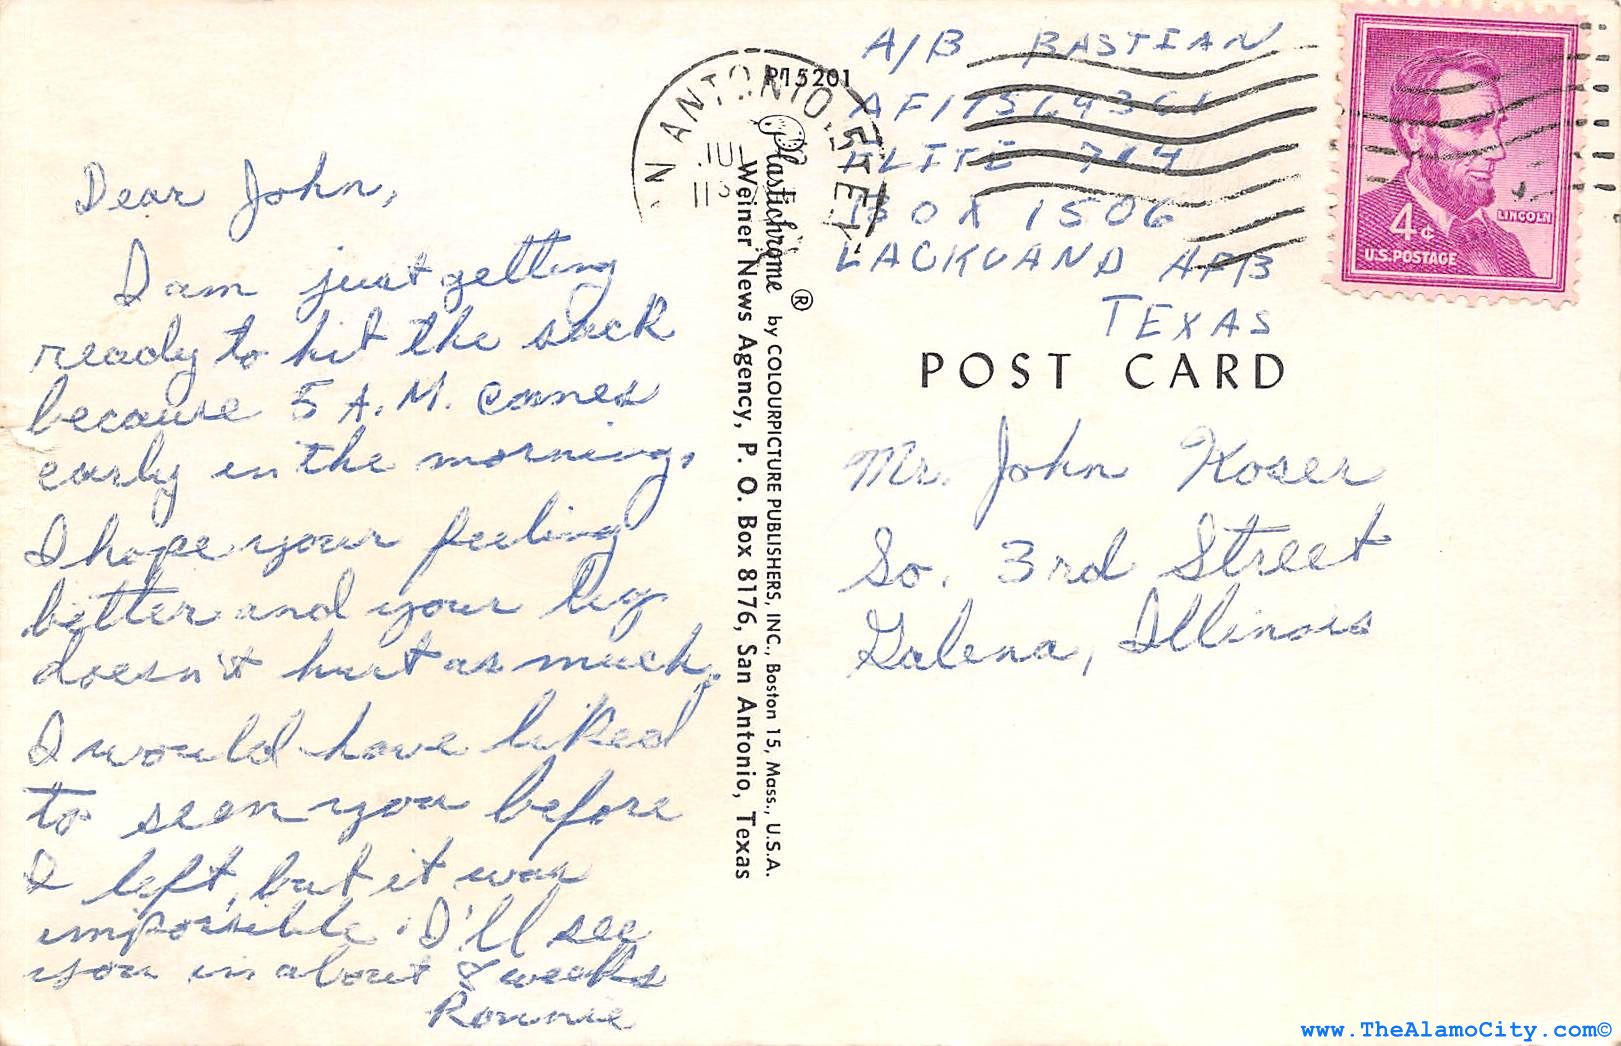 Dear John,
I am just getting
ready to hit the sack
because 5 A.M. comes
early in the morning.
I hope your feeling
better and your leg
doesn't hurt as much.
I would have liked
to seen you before
I left, but it was
impossible. I'll see
you in about 8 weeks
Ronnie
P15201
Plastichrome ® by COLOURPICTURE PUBLISHERS, INC., Boston 15, Mass., U.S.A.
Weiner News Agency, P. O. Box 8176, San Antonio, Texas
N ANTONIO, TEX
JUL
A/B BASTIAN
FLITE 714
BOX 1506
LACKLAND AFB
TEXAS
4¢
LINCOLN
U.S. POSTAGE
POST CARD
Mr. John Koser
So. 3rd Street
Galena, Illinois
www.TheAlamoCity.com©